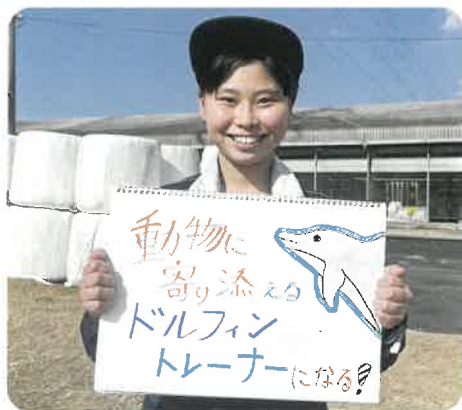 動物に
寄り添える
ドルフィン
トレーナーになる!